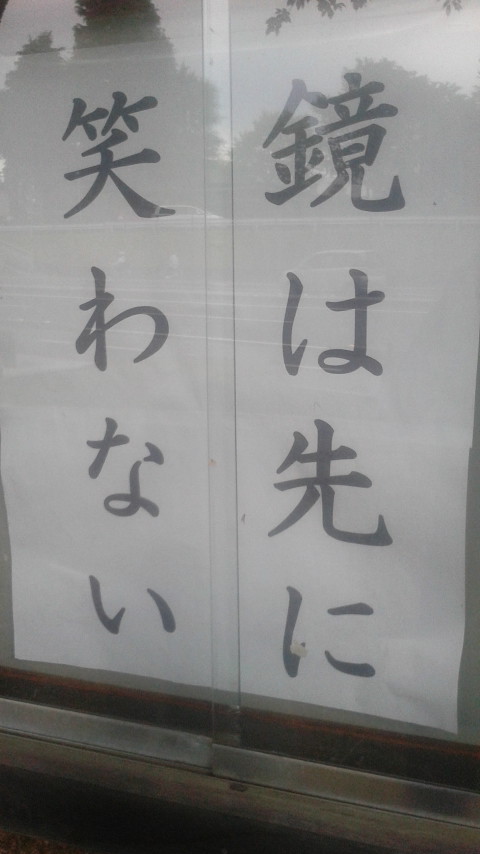 鏡は先に
笑わない